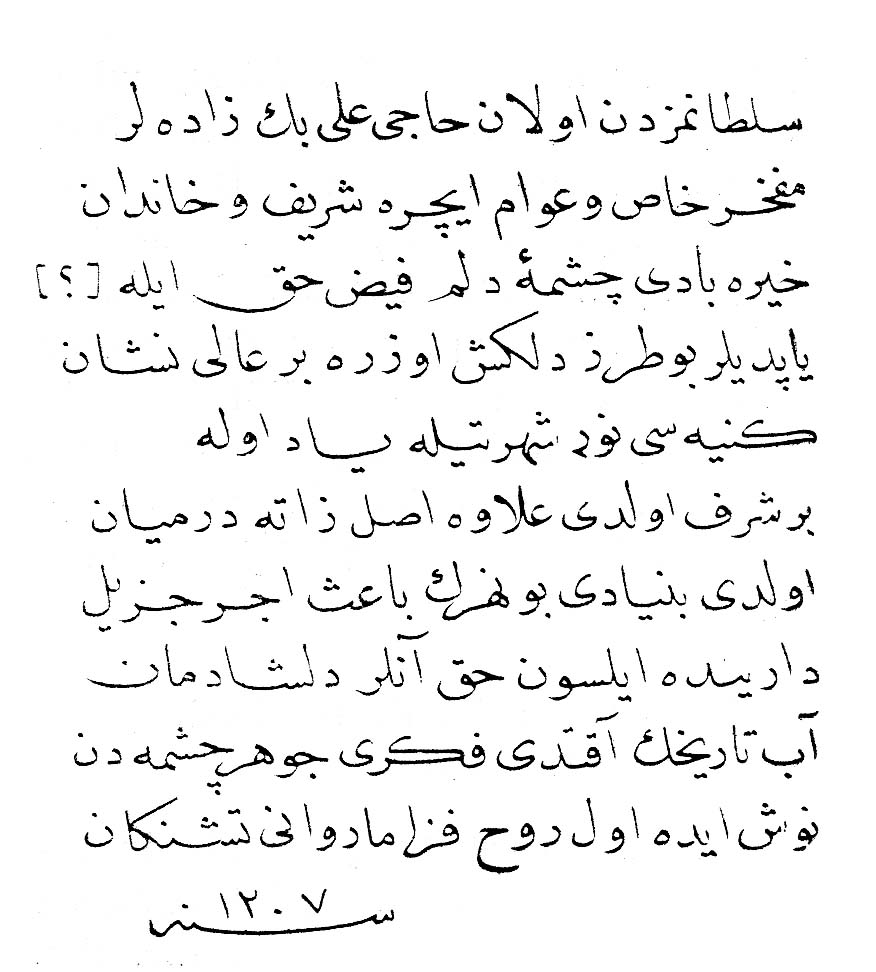 سلطانمزدن اولان حاجی علی بك زاده لر
مفخر خاص و عوام ایچره شریف و خاندان
خیره بادی چشمهٔ دلم فیض حق ایله [؟]
یاپدیلر بو طرز دلکش اوزره بر عالی نشان
کنیه سی نوری شهرتیله یاد اوله
بر شرف اولدی علاوه اصل زاته درمیان
اولدی بنیادی بو نهرك باعث اجر جزیل
دارینده ایلسون حق آنلر دلشادمان
آب تاریخك آقتدی فکری جوهر چشمه دن
نوش ایده اول روح فزا ماروانی تشنکان
سنه ١٢٠٧